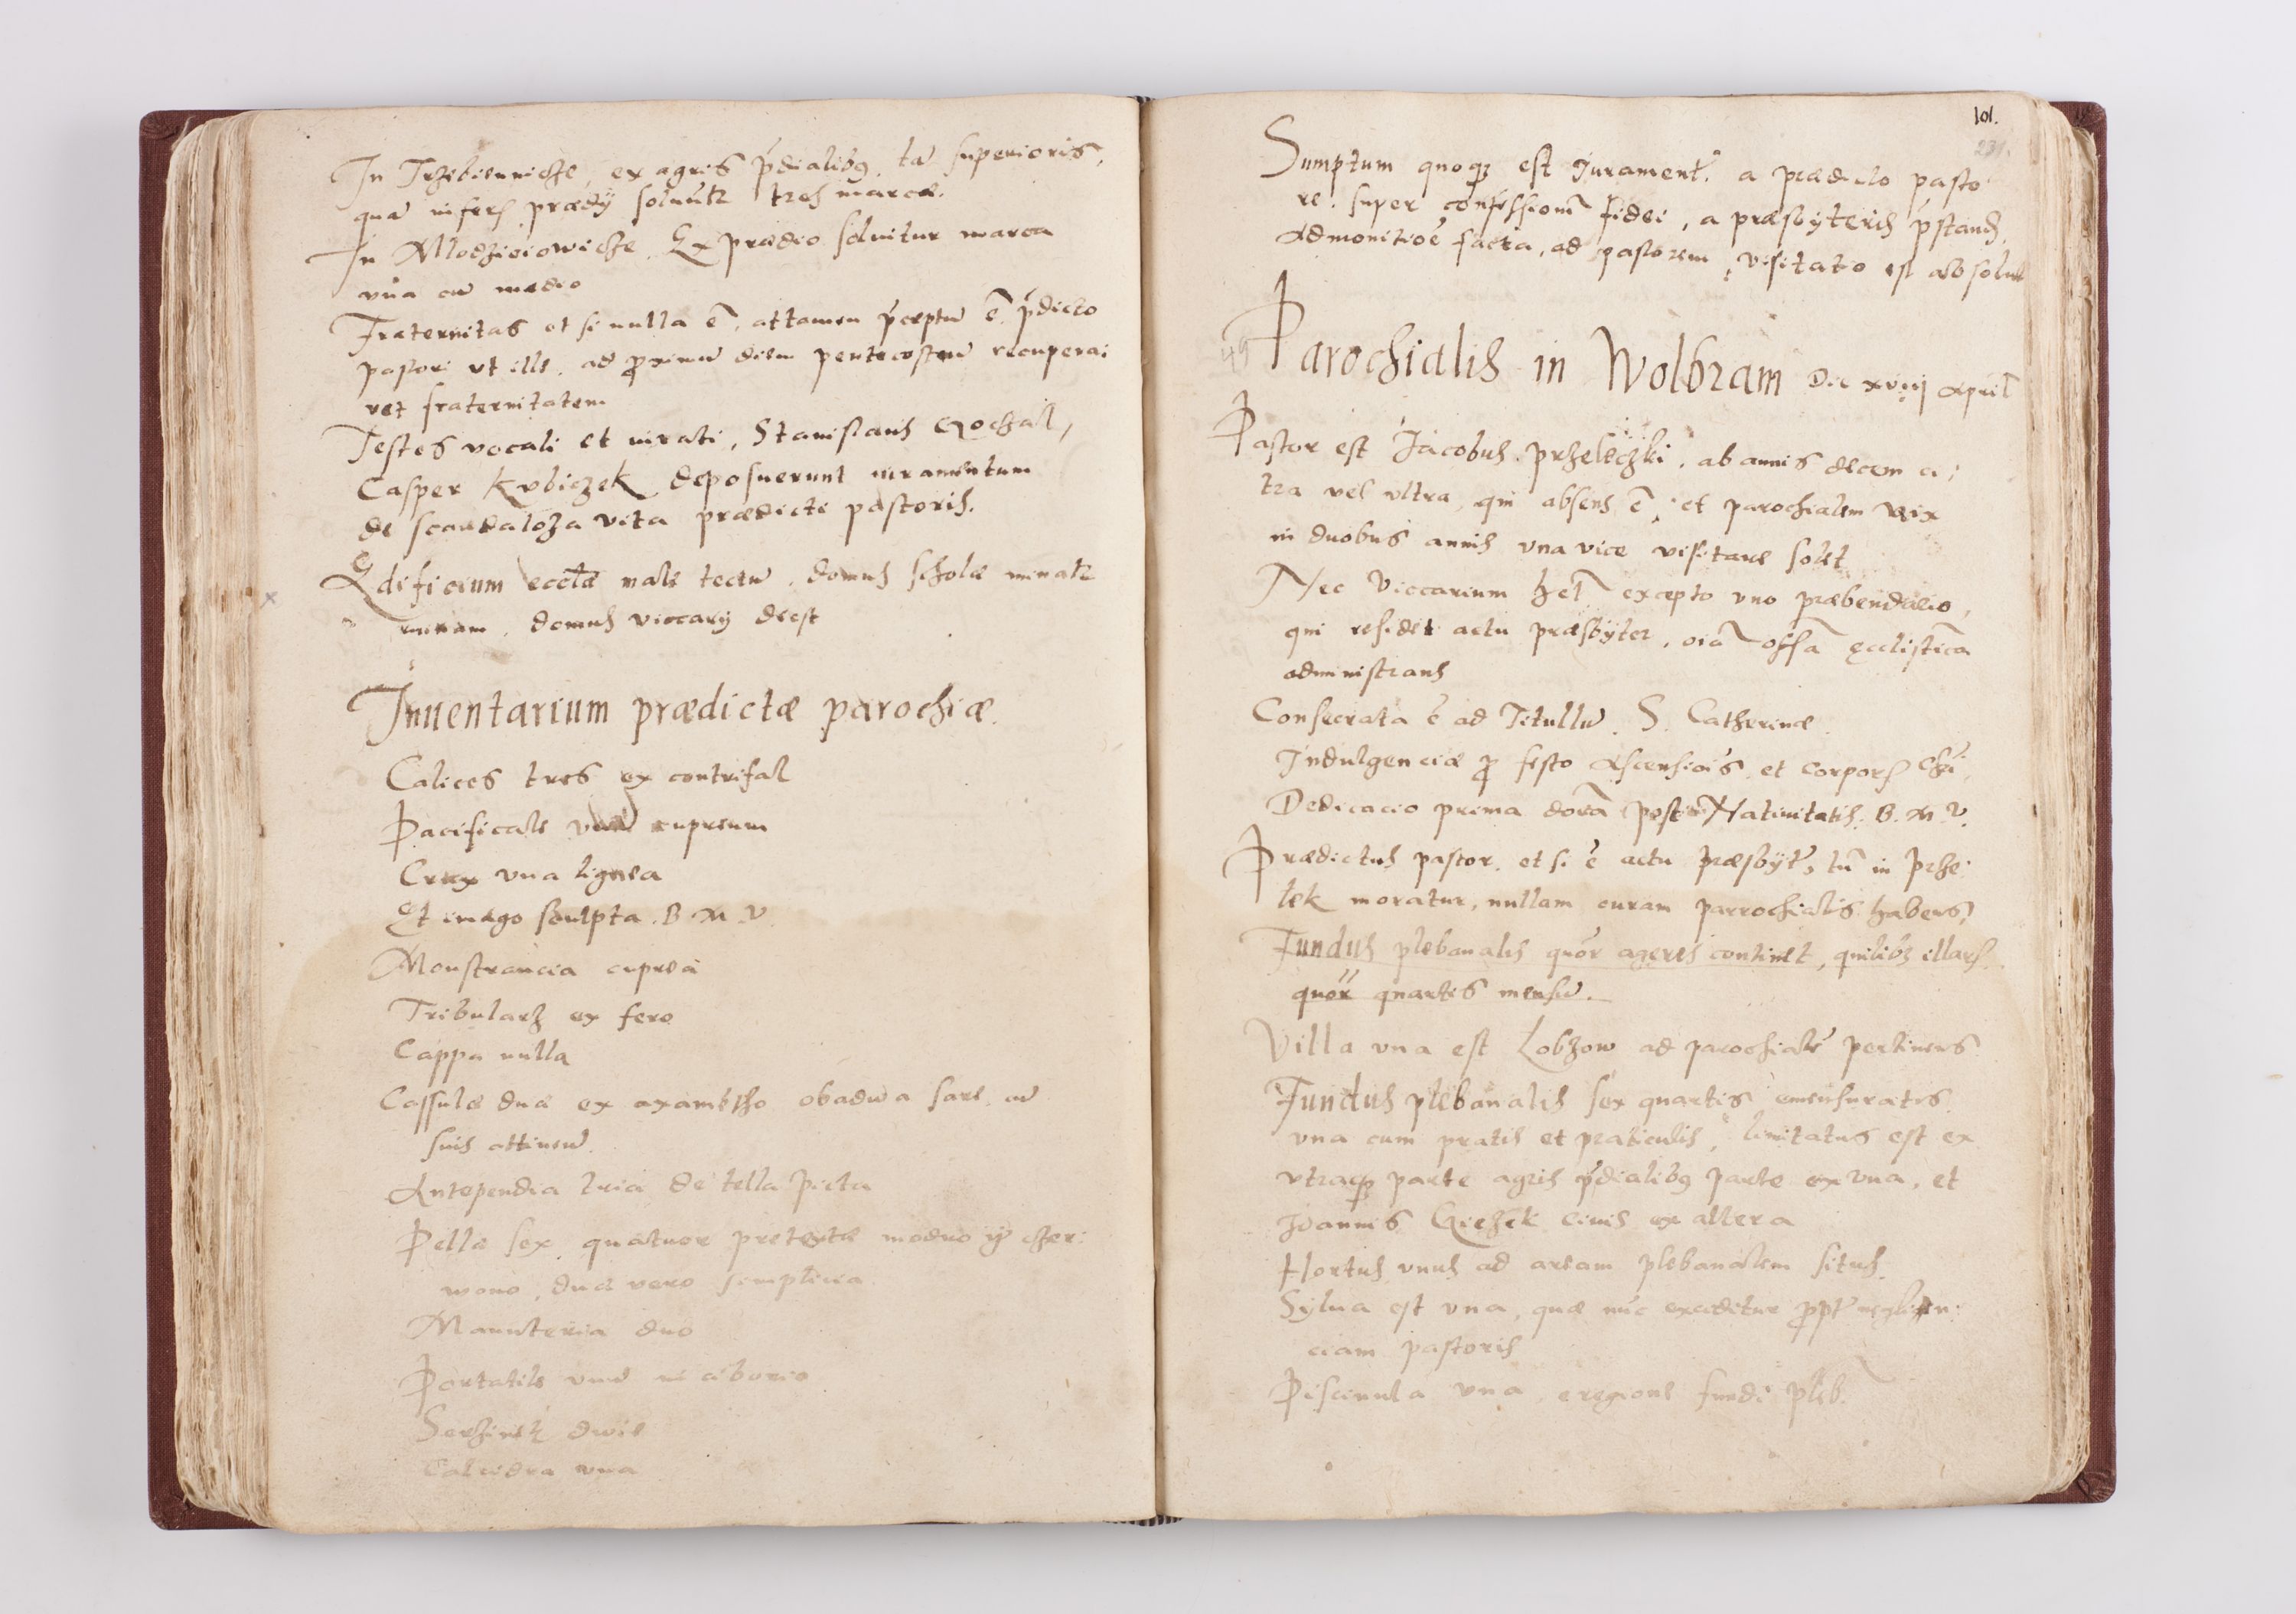 In Trzebienicze, ex agris p̄dialibꝯ, ta͞ superioris,
qua͞ infers prædÿ soluu͞tr tres marcæ.
In Mlodzieiowicze. Ex prædio soluitur marca
vn̄a cu͞ medio
Fraternitas et si nulla e͞, attamen p̄ceptu͞ e͞ p̄dicto
pastori vt ille, ad ꝓximu͞ diem pentecosten͞ recuperai
ret fraternitatem
Testes vocali et iurati, Stanislaus
Casper Kubiczek deposuerunt iuramentum
de scandaloza vita prædicti pastoris.
Edificium eccl͞æ male tectu͞, domus scholæ minatr
ruinam, domus viccarÿ deest
Inuentarium prædictæ parochiæ.
Calices tres ex contrifal
Pacificale vnu͞ cupreum
Crux vna lignea
Et imago sculpta. B. M. V.
Monstrancia cuprea
Tribularz ex fero
Cappa nulla
Cassulæ duæ ex axamitho obadwa sare, cu͞
suis attinen͞.
Antependia tria de tella picta
Pellæ sex, quatuor pretextæ modro ÿ czer:
wono, duæ vero simplicia
Manuteria duo
Portatile vnu͞ in ciborio
dwie
vna
101.
231.
Sumptum quoqꝫ est Jurament͞. a prædicto pasto
re. super confessiom͞ fidei, a præsbyteris p̄stand.
Admonitioe͞ facta, ad pastorem, visitatio est absolut
49 Parochialis in Wolbram Die xviij April͞
Pastor est Jacobus Przeleczki, ab annis decem ci:
tra vel vltra, qui absens e͞, et parochialem vix
in duobus annis vna vice visitare solet
Nec Viccarium h͞et excepto vno præbendario,
qui residet actu præsbÿter, oia͞ offa͞ ecclistica͞
administrans
Consecrata e͞ ad Titullu͞. S. Catherinæ.
Indulgenciæ ꝓ festo Ascensiois͞, et corpors chri͞,
Dedicacio prima dom͞ca post Natiuitatis. B. M. V.
Prædictus pastor. et si e͞ actu præsbyt͞, tn͞ in Prze:
lek moratur, nullam curam parrochialis habens,
Fundus plebanalis quor͞ ageres continet, quilibꝫ illars
quor͞ quartis mensu͞.
Villa vna est Lobzow ad parochiale͞ pertinens
Fundus plebanalis sex quartis emensuratus
vna cum pratis et praticulis, limitatus est ex
vtraqꝫ parte agris p̄dialibꝯ parte ex vna, et
Joannis ciuis ex altera
Hortus vnus ad aream plebanalem situs
Sylua est vna, quæ nu͞c exciditur ꝓpt͞ negligen:
ciam pastoris
Piscinula vna, eregione fundi pleb.